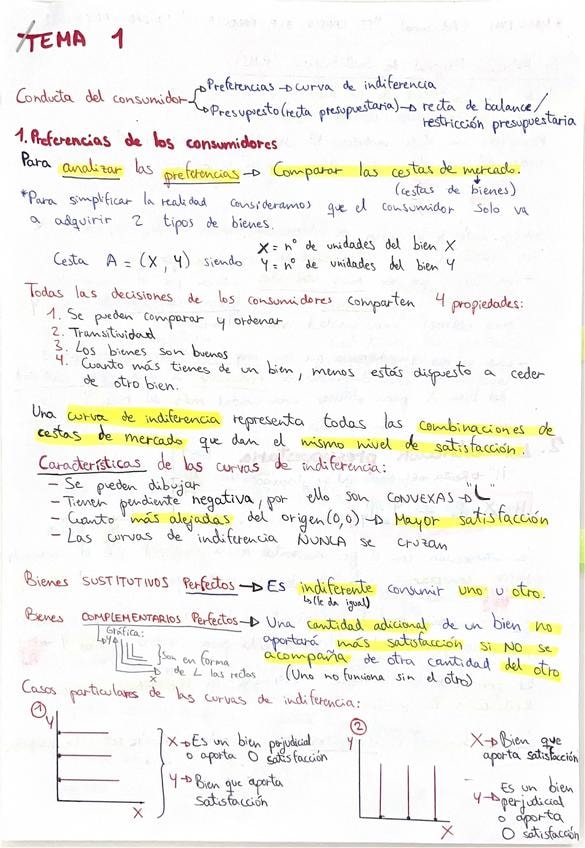 TEMA 1
Conducta del consumidor → Preferencias → curva de indiferencia
→ Presupuesto (recta presupuestaria) → recta de balance/
restricción presupuestaria
1. Preferencias de los consumidores
Para analizar las preferencias → Comparar las cestas de mercado.
(cestas de bienes)
*Para simplificar la realidad consideramos que el consumidor solo va
a adquirir 2 tipos de bienes.
Cesta A = (X, Y) siendo X = nº de unidades del bien X
Y = nº de unidades del bien Y
Todas las decisiones de los consumidores comparten 4 propiedades:
1. Se pueden comparar y ordenar
2. Transitividad
3. Los bienes son buenos
4. Cuanto más tienes de un bien, menos estás dispuesto a ceder
de otro bien.
Una curva de indiferencia representa todas las combinaciones de
cestas de mercado que dan el mismo nivel de satisfacción.
Características de las curvas de indiferencia:
- Se pueden dibujar
- Tienen pendiente negativa, por ello son CONVEXAS → "L"
- Cuanto más alejadas del origen (0,0) → Mayor satisfacción
- Las curvas de indiferencia NUNCA se cruzan
Bienes SUSTITUTIVOS Perfectos → Es indiferente consumir uno u otro.
(le da igual)
Bienes COMPLEMENTARIOS Perfectos → Una cantidad adicional de un bien no
Gráfica:
aportará más satisfacción si NO se
Y
} Son en forma
acompaña de otra cantidad del otro
X
de L las rectas
(Uno no funciona sin el otro)
Casos particulares de las curvas de indiferencia:
1
Y
X → Es un bien perjudicial
o aporta 0 satisfacción
Y → Bien que aporta
satisfacción
X
2
Y
X → Bien que
aporta satisfacción
Y → Es un bien
perjudicial
o aporta
0 satisfacción
X